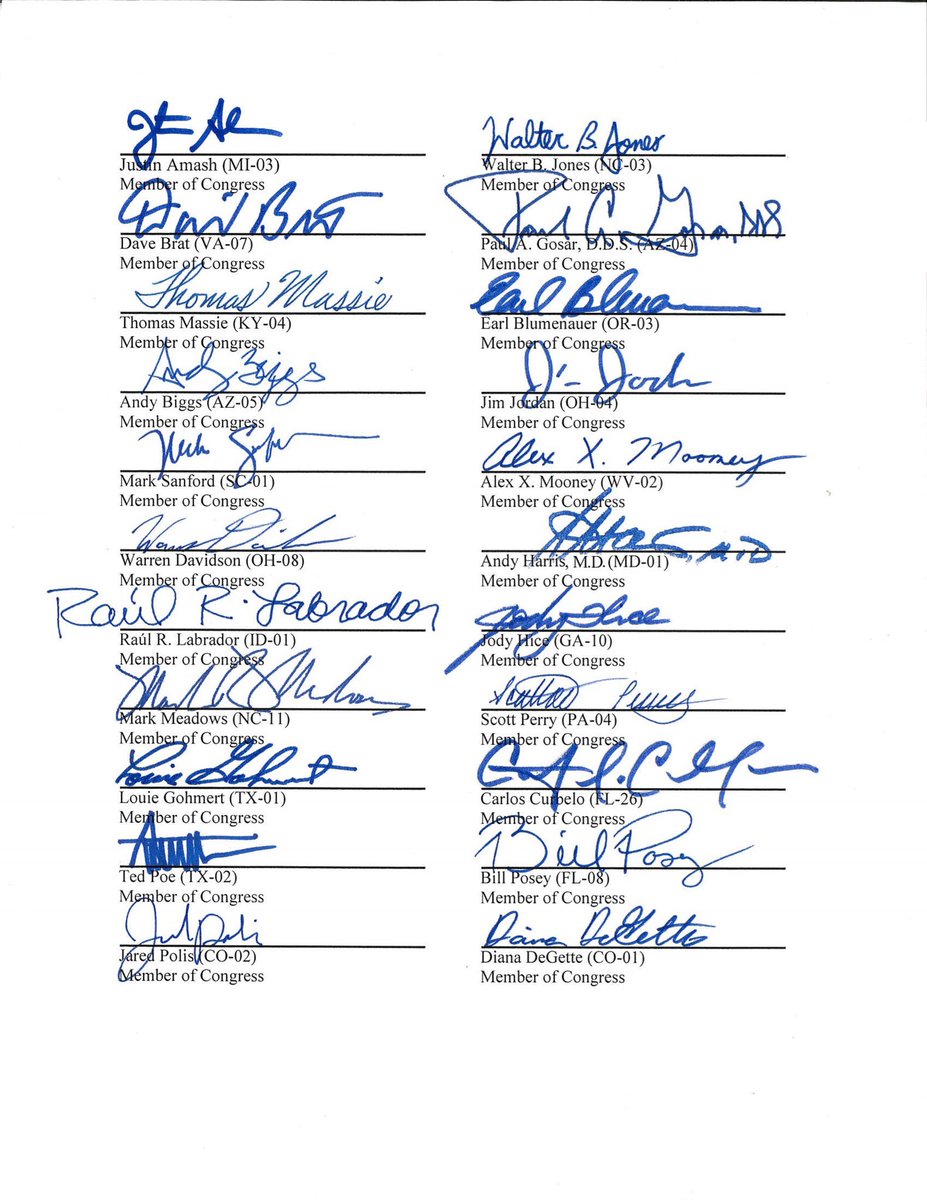 Justin Amash (MI-03)
Member of Congress
David Brat
Dave Brat (VA-07)
Member of Congress
Thomas Massie
Thomas Massie (KY-04)
Member of Congress
Andy Biggs
Andy Biggs (AZ-05)
Member of Congress
Mark Sanford (SC-01)
Member of Congress
Warren Davidson (OH-08)
Member of Congress
Raúl R. Labrador
Raúl R. Labrador (ID-01)
Member of Congress
Mark Meadows (NC-11)
Member of Congress
Louie Gohmert
Louie Gohmert (TX-01)
Member of Congress
Ted Poe (TX-02)
Member of Congress
Jared Polis (CO-02)
Member of Congress
Walter B. Jones
Walter B. Jones (NC-03)
Member of Congress
Paul A. Gosar, DDS
Paul A. Gosar, D.D.S. (AZ-04)
Member of Congress
Earl
Earl Blumenauer (OR-03)
Member of Congress
Jim Jordan (OH-04)
Member of Congress
Alex X. Mooney
Alex X. Mooney (WV-02)
Member of Congress
Andy Harris, M.D. (MD-01)
Member of Congress
Jody Hice
Jody Hice (GA-10)
Member of Congress
Scott Perry (PA-04)
Member of Congress
Carlos Curbelo (FL-26)
Member of Congress
Bill Posey
Bill Posey (FL-08)
Member of Congress
Diana DeGette
Diana DeGette (CO-01)
Member of Congress